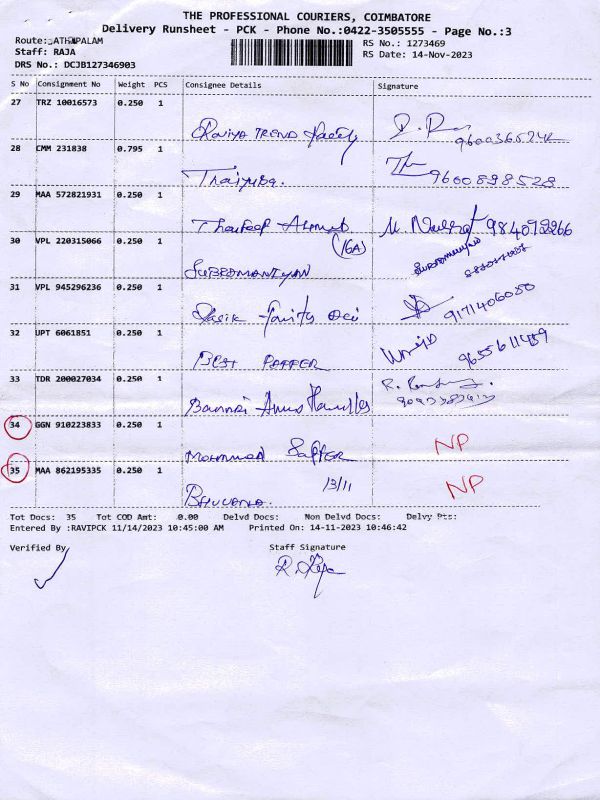 THE PROFESSIONAL COURIERS, COIMBATORE
Delivery Runsheet - PCK - Phone No.:0422-3505555 - Page No.:3
Route: ATHIPALAM
RS No.: 1273469
Staff: RAJA
RS Date: 14-Nov-2023
DRS No.: DCJB127346903
S No Consignment No Weight PCS Consignee Details Signature
27 TRZ 10016573 0.250 1
9600365242
28 CMM 231838 0.795 1
Thaiyuba. 9600898529
29 MAA 572821931 0.250 1
Ahmed 984092266
30 VPL 220315066 0.250 1 (IGA)
SUBROMANIYAN
31 VPL 945296236 0.250 1
9171406050
32 UPT 6061851 0.250 1
BEST PAPPER 9655611489
33 TDR 200027034 0.250 1
Bannari
34 GGN 910223833 0.250 1
MOHAMMAD NP
35 MAA 862195335 0.250 1 13/11
BHUVANA. NP
Tot Docs: 35 Tot COD Amt: 0.00 Delvd Docs: Non Delvd Docs: Delvy Pts:
Entered By :RAVIPCK 11/14/2023 10:45:00 AM Printed On: 14-11-2023 10:46:42
Verified By Staff Signature